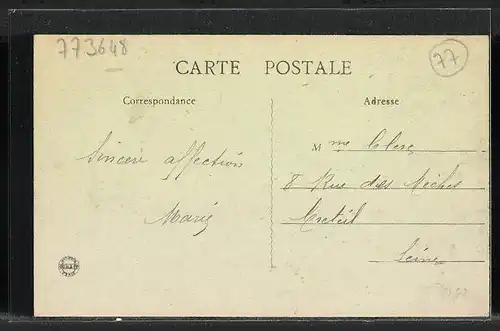 773648
77
CARTE POSTALE
Correspondance
Adresse
Sincère affection
Marie
Mme Clerc
8 Rue des Mèches
Créteil
Seine